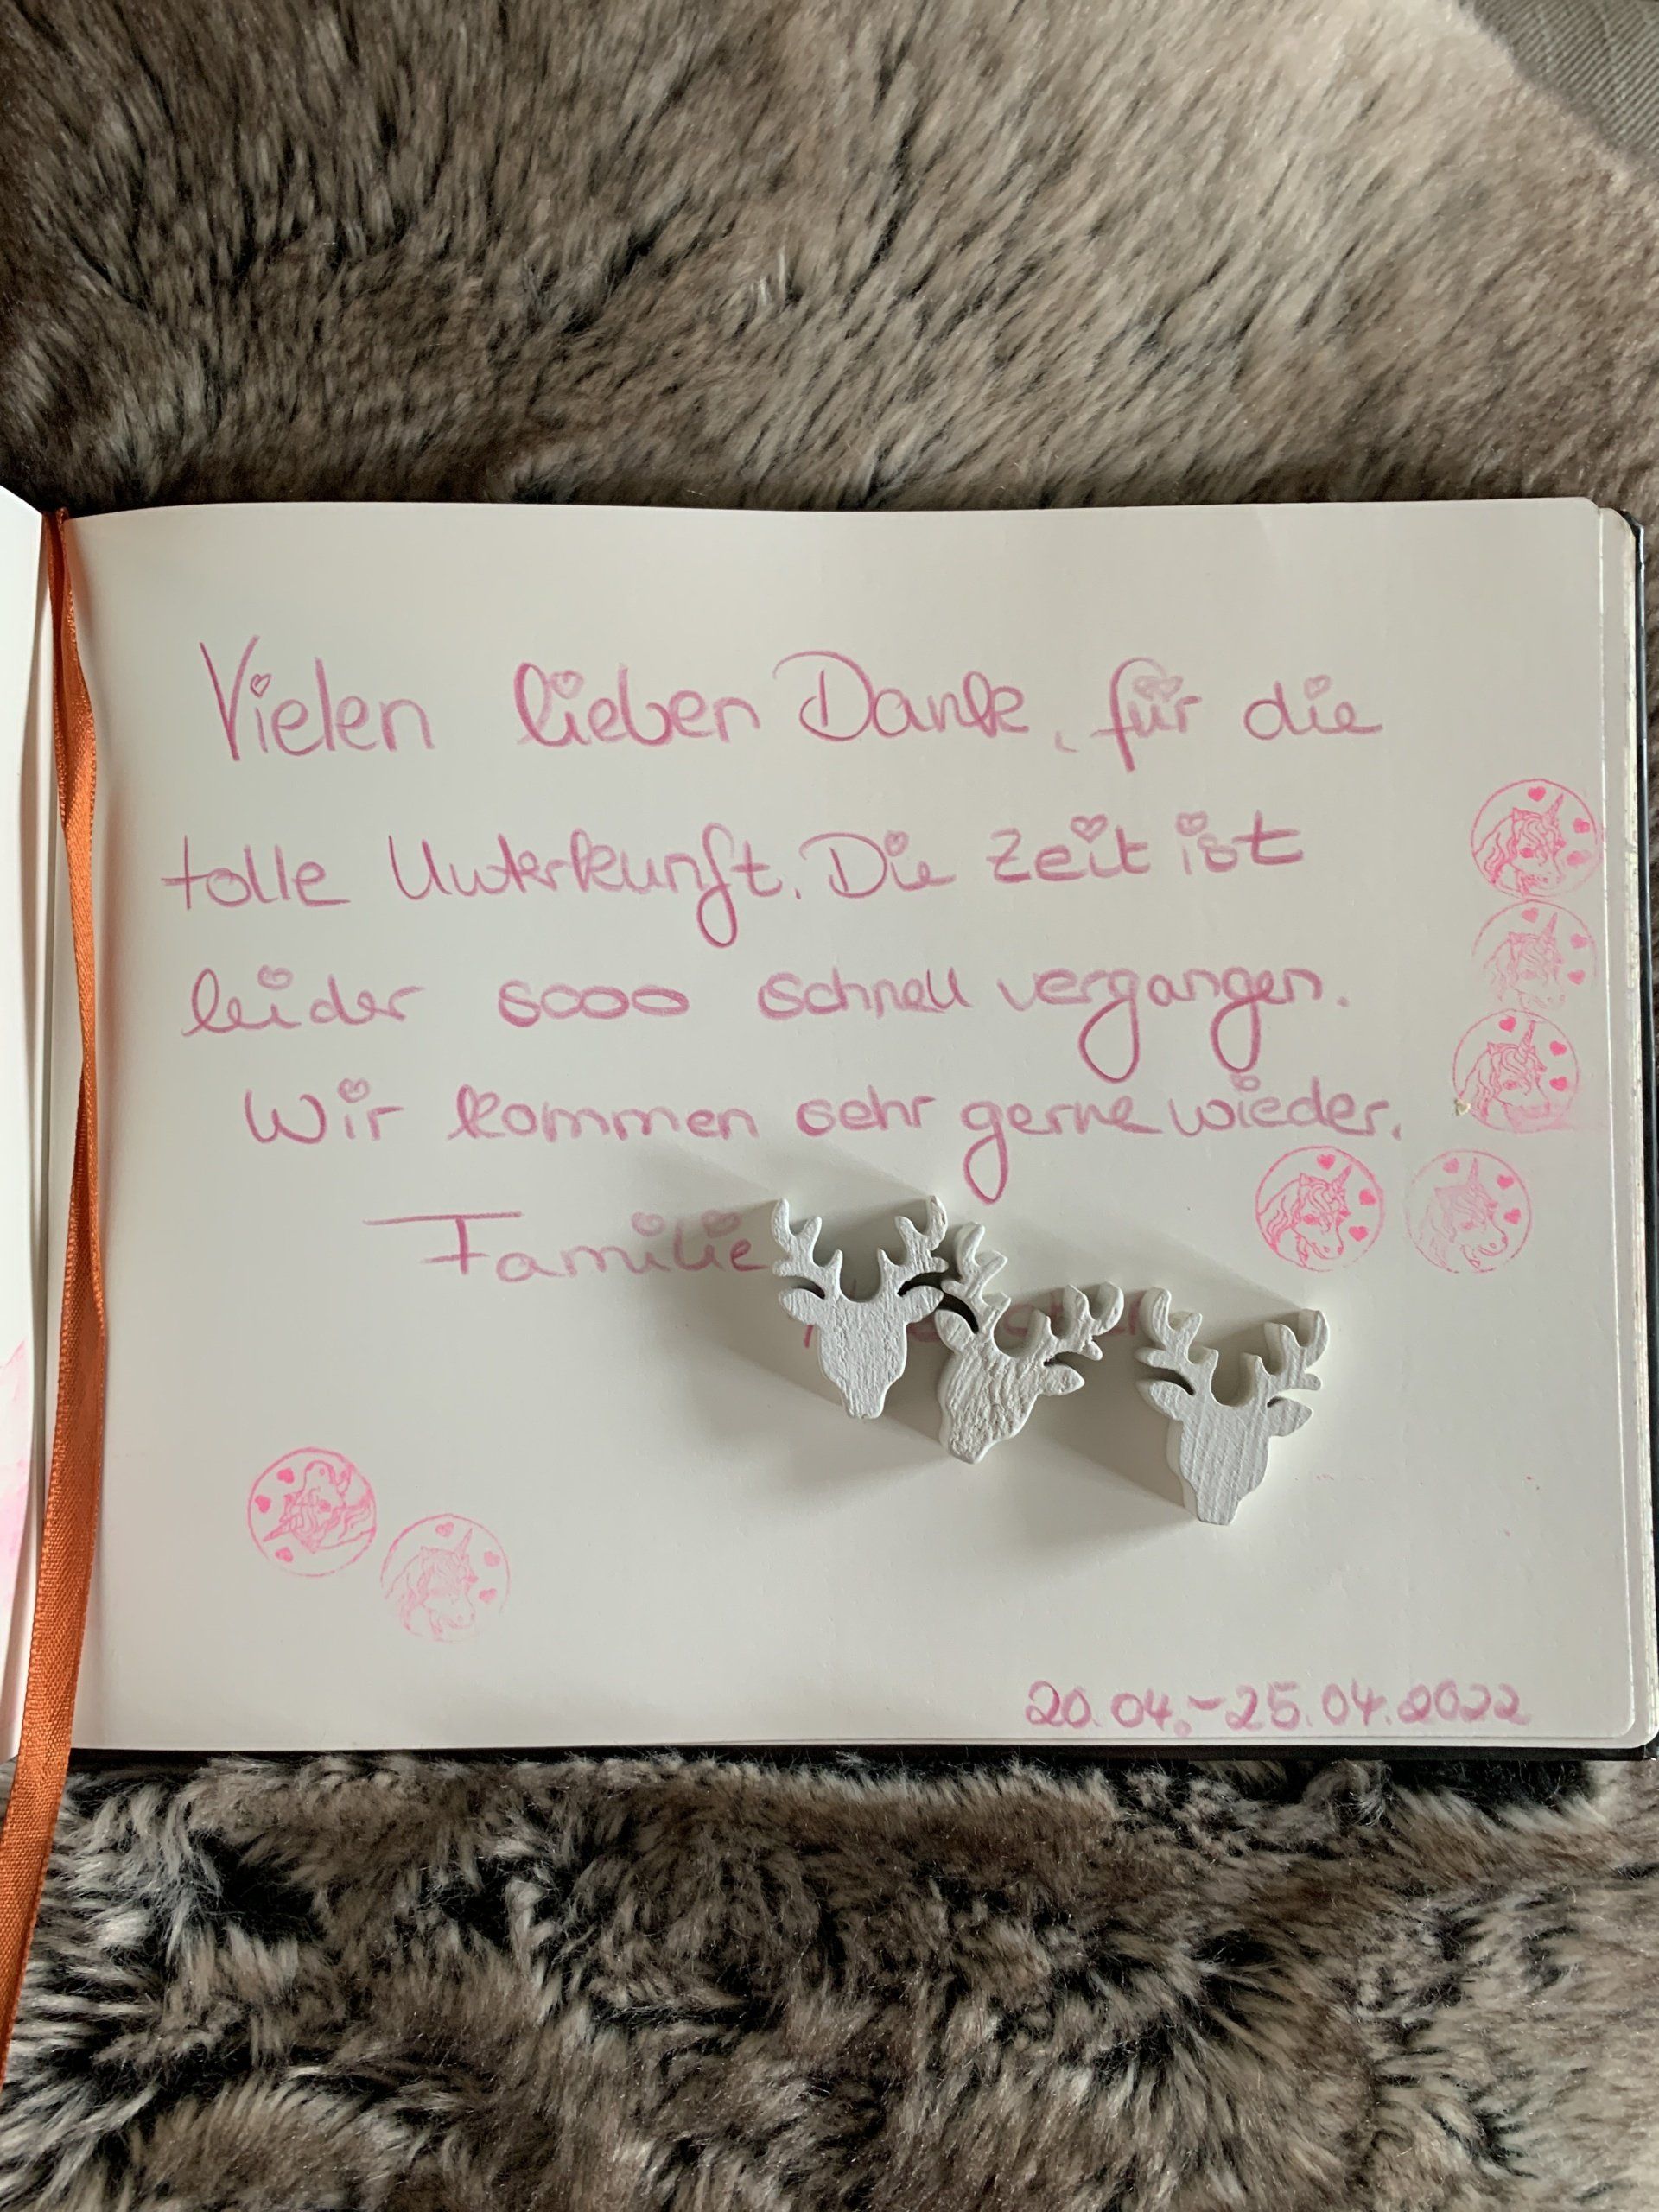 Vielen lieben Dank, für die
tolle Unterkunft. Die Zeit ist
leider sooo schnell vergangen.
Wir kommen sehr gerne wieder.
Familie
20.04.-25.04.2022